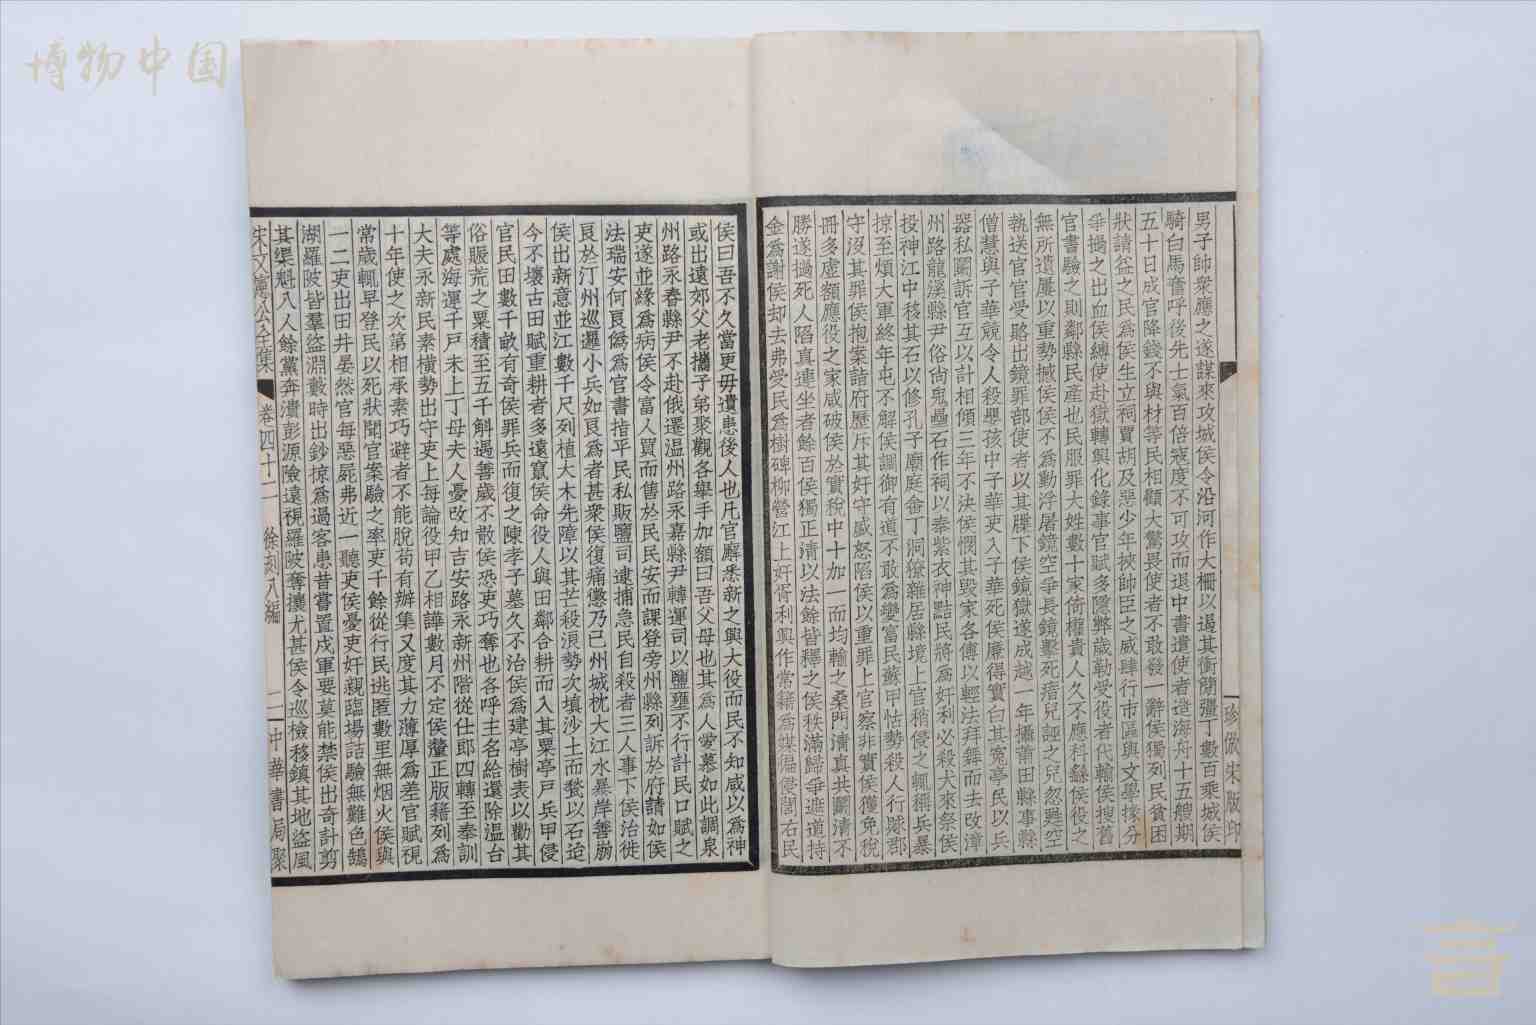 博物中国
珍倣宋版印
男子帥衆應之遂謀來攻城侯令沿河作大柵以遏其衝簡彊丁數百乘城侯
騎白馬奮呼後先士氣百倍寇度不可攻而退中書遣使者造海舟十五艘期
五十日成官降錢不與材等民相顧大驚畏使者不敢發一辭侯獨列民貧困
狀請益之民爲侯生立祠賈胡及惡少年挾帥臣之威肆行市區與文學掾分
爭撾之出血侯縛使赴獄轉興化錄事官賦多隱弊歲勒受役者代輸侯搜舊
官書驗之則鄰縣民產也民服罪大姓數十家倚權貴人久不應科繇侯役之
無所遺屢以重勢撼侯侯不爲動浮屠鏡空爭長鏡擊死瘖兒誣之兒忽甦空
執送官官受賂出鏡罪部使者以其牒下侯鏡獄遂成越一年攝莆田縣事縣
僧慧與子華競令人殺嬰孩中子華吏入子華死侯廉得實白其寃亭民以兵
器私鬭訴官互以計相傾三年不決侯憫其毀家各傅以輕法拜舞而去改漳
州路龍溪縣尹俗尚鬼壘石作祠以奉紫衣神點民將爲奸利必殺犬來祭侯
投神江中移其石以修孔子廟庭畬丁洞獠雜居縣境上官稍侵之輒稱兵暴
掠至煩大軍終年屯不解侯調御有道不敢爲變富民蘇甲怙勢殺人行賕郡
守沒其罪侯抱案詣府歷斥其奸守慼怒陷侯以重罪上官察非實侯獲免稅
冊多虛額應役之家咸破侯於實稅中十加一而均輸之桑門淸真共鬭淸不
勝遂撾死人陷真連坐者餘百侯獨正淸以法餘皆釋之侯秩滿歸爭遮道持
金爲謝侯却去弗受民爲樹碑柳營江上奸胥利興作常籍爲媒偏侵閭右民
侯曰吾不久當更毋遺患後人也凡官廨悉新之興大役而民不知咸以爲神
或出遠郊父老攜子弟聚觀各舉手加額曰吾父母也其爲人愛慕如此調泉
州路永春縣尹不赴俄遷温州路永嘉縣尹轉運司以鹽壅不行計民口賦之
吏遂並緣爲病侯令富人買而售於民民安而課登旁州縣列訴於府請如侯
法瑞安何艮僞爲官書指平民私販鹽司逮捕急民自殺者三人事下侯治徙
艮於汀州巡邏小兵如艮爲者甚衆侯復痛懲乃已州城枕大江水暴岸善崩
侯出新意並江數千尺列植大木先障以其芒殺浪勢次填沙土而甃以石迄
今不壞古田賦重耕者多遠竄侯命役人與田鄰合耕而入其粟亭戶兵甲侵
官民田數千畝有奇侯罪兵而復之陳孝子墓久不治侯爲建亭樹表以勸其
俗賑荒之粟積至五千斛遇善歲不散侯恐吏巧奪也各呼主名給還除温台
等處海運千戶未上丁母夫人憂改知吉安路永新州階從仕郎四轉至奉訓
大夫永新民素横勢出守吏上每論役甲乙相譁數月不定侯釐正版籍列爲
十年使之次第相承素巧避者不能脫苟有辦集又度其力薄厚爲差官賦視
常歲輒早登民以死狀聞官案驗之率吏千餘從行民逃匿數里無烟火侯與
一二吏出田井晏然官每惡屍弗近一聽吏侯憂吏奸親臨場詰驗無難色鵠
湖羅陂皆羣盜淵藪時出鈔掠爲過客患昔嘗置戍軍要莫能禁侯出奇計剪
其渠魁入人餘黨奔潰彭源險遠視羅陂奪攘尤甚侯令巡檢移鎮其地盜風
宋文憲公全集 卷四十二 徐刻八編 二 中華書局聚